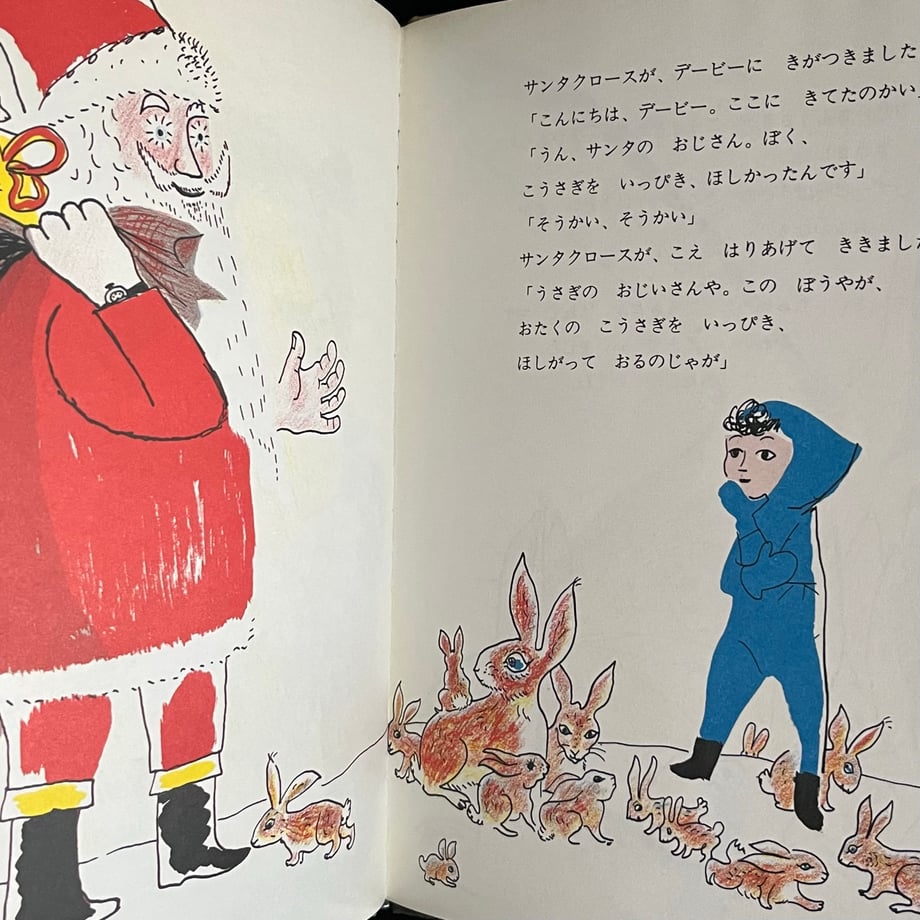 サンタクロースが、デービーに　きがつきました
「こんにちは、デービー。ここに　きてたのかい」
「うん、サンタの　おじさん。ぼく、
こうさぎを　いっぴき、ほしかったんです」
「そうかい、そうかい」
サンタクロースが、こえ　はりあげて　ききました
「うさぎの　おじいさんや。この　ぼうやが、
おたくの　こうさぎを　いっぴき、
ほしがって　おるのじゃが」